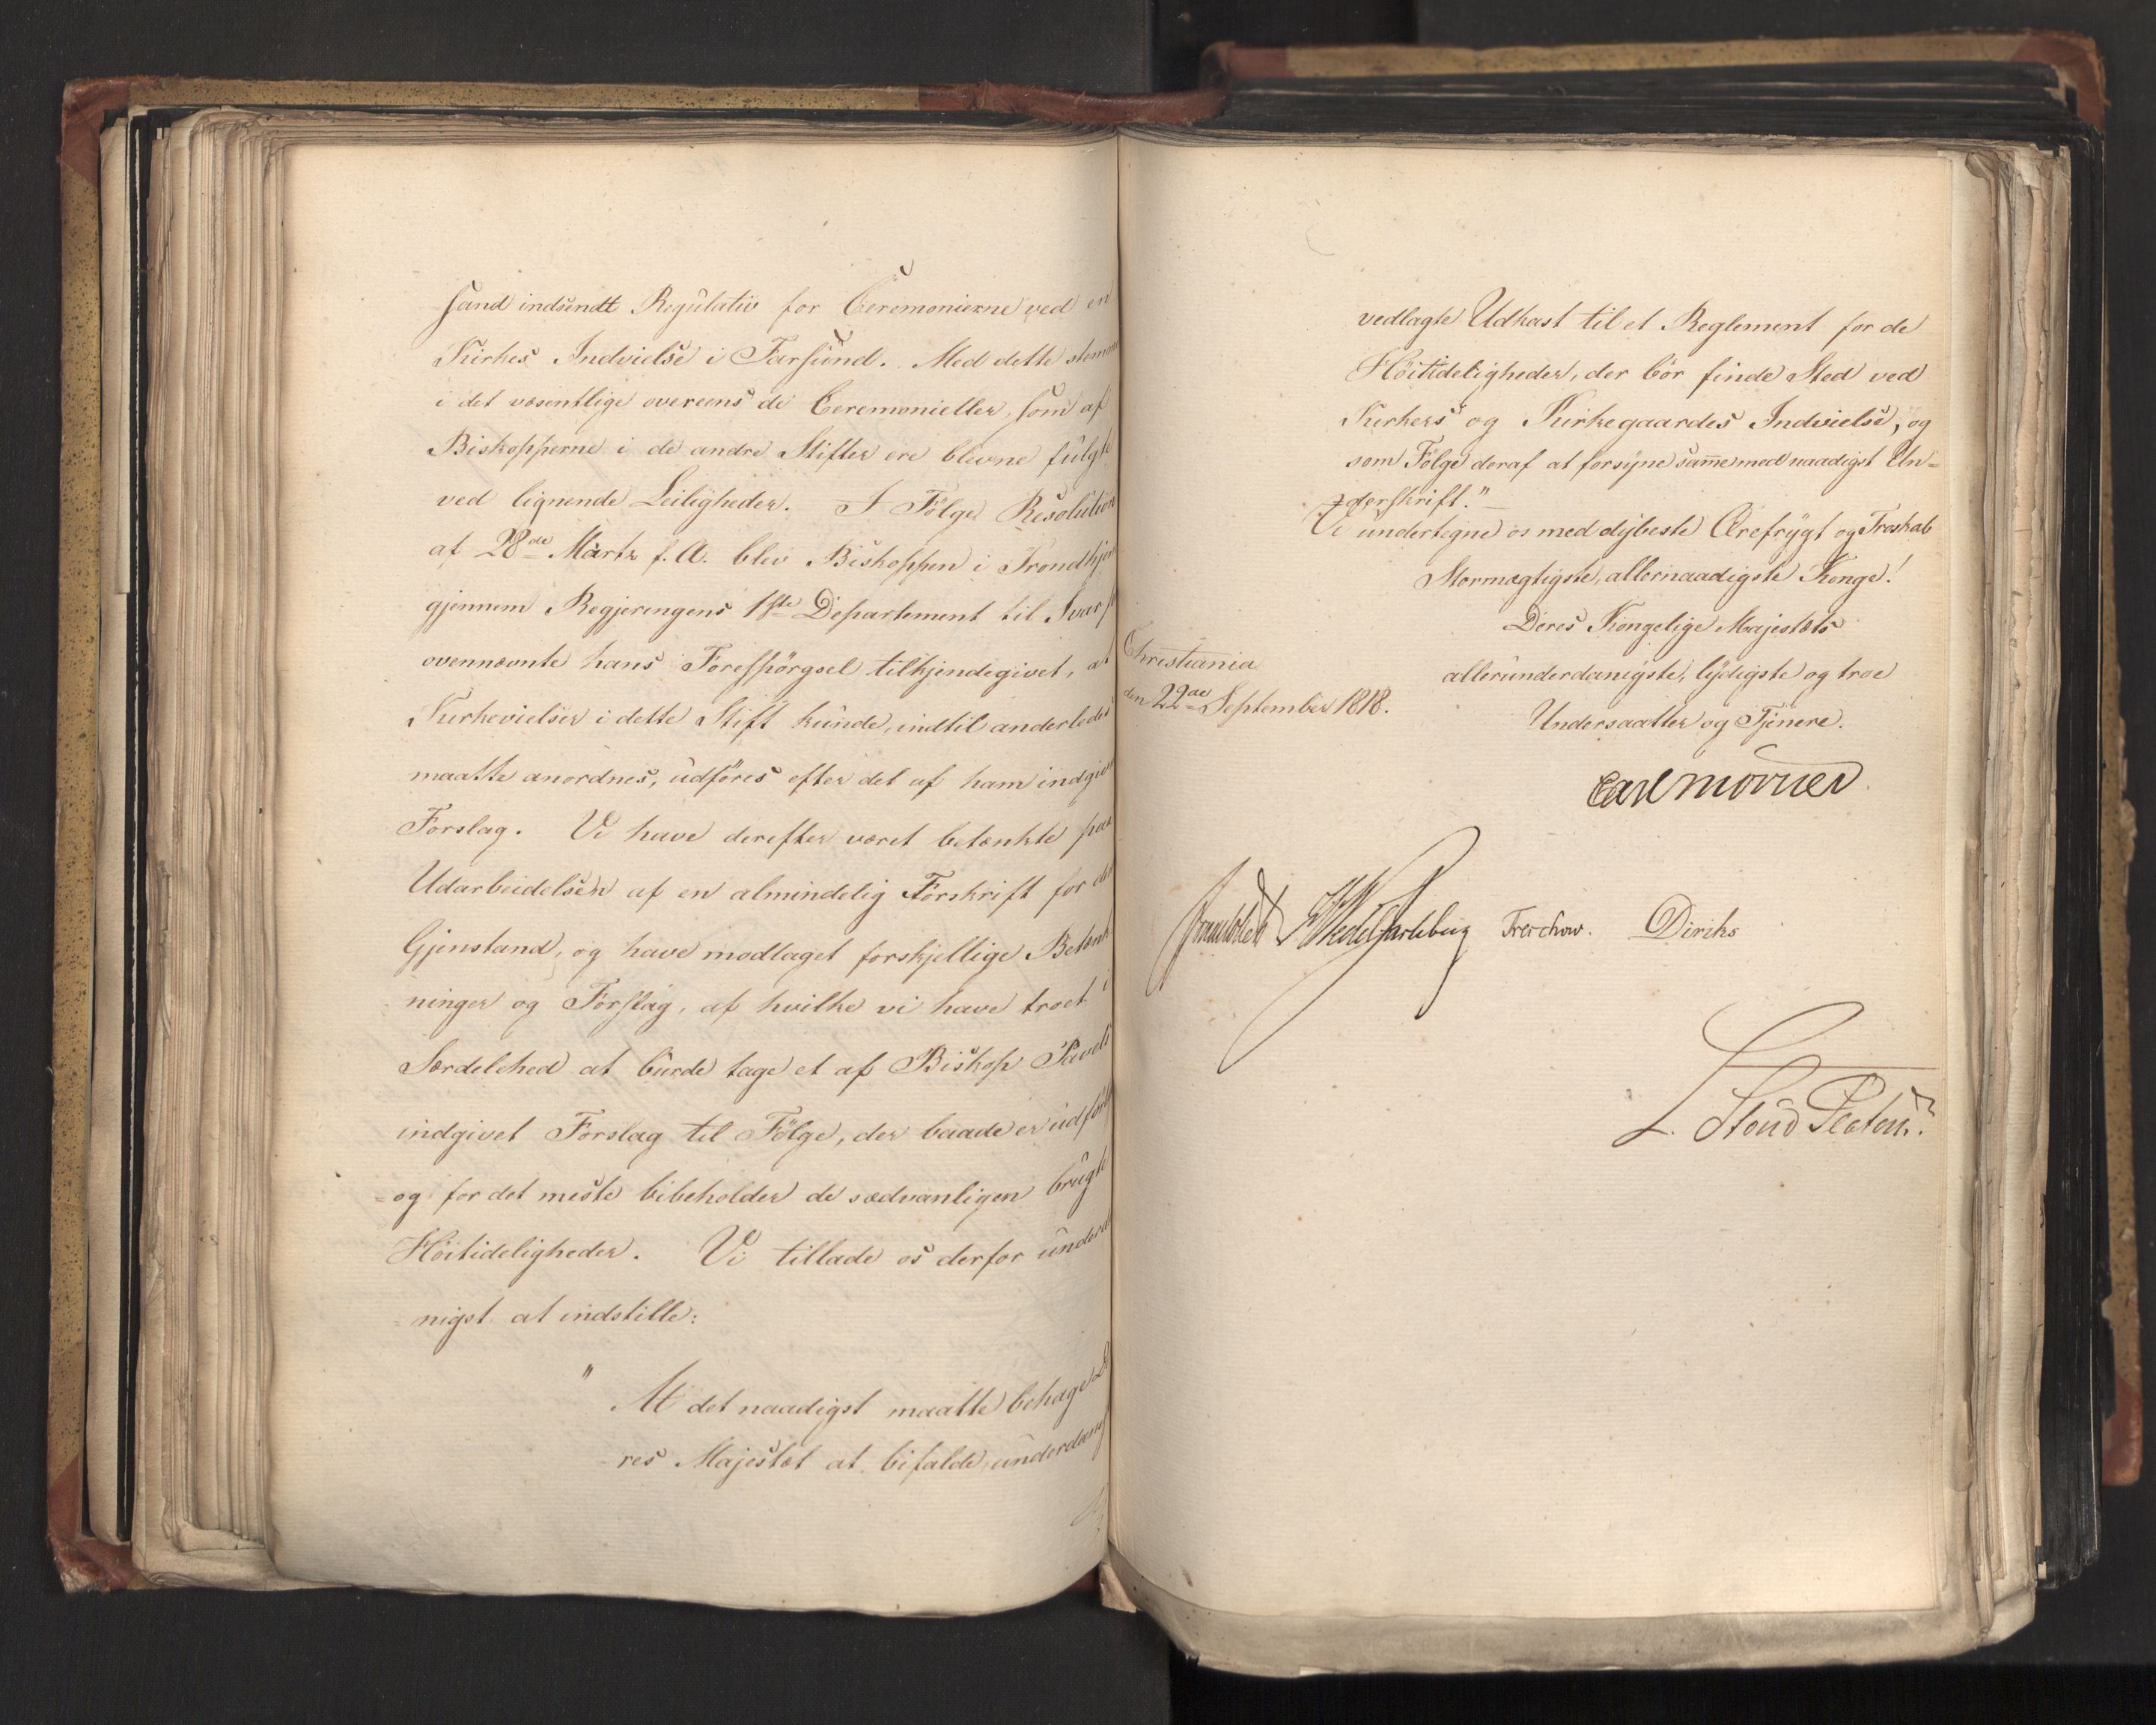 sand indsendt Regulativ for Ceremonierne ved en
Kirkes Indvielse i Farsund. Med dette stemme
i det væsentlige overeens de Ceremonieller, som af
Biskopperne i de andre Stifter ere blevne fulgte
ved lignende Leiligheder. I Følge Resolution
af 28de Martz f. A. blev Biskoppen i Trondhjem
gjennem Regjeringens 1ste Departement til Svar p
ovennævnte hans Forespörgsel tilkjendegivet, at
Kirkevielser i dette Stift kunde, indtil anderledes
maatte anordnes, udföres efter det af ham indgivne
Forslag. Vi have derefter været betænkte paa
Udarbeidelsen af en almindelig Forskrift for den
Gjenstand, og have modtaget forskjellige Betænk
ninger og Forslag, af hvilke vi have troet i
Særdelehed at burde tage et af Biskop Pavels
indgivet Forslag til Fölge, der baade er udför
og for det meste bibeholder de sædvanligen brugte
Höitideligheder. Vi tillade os derfor underd
nigst at indstille:
" At det naadigst maatte behage De
res Majestæt at bifalde underdanig
vedlagte Udkast til et Reglement for de
Höitideligheder, der bör finde Sted ved
Kirkers og Kirkegaardes Indvielse, og
som Fölge deraf at forsyne samme med naadigst Un=
derskrift."
Vi undertegne os med dybeste Ærefrygt og Troskab
Stormægtigste, allernaadigste Konge!
Deres Kongelige Majestæts
Christiania
den 22de September 1818.
allerunderdanigste, lydigste og troe
Undersaatter og Tjenere.
Carl Mörner
Sommerhielm HWedel Jarlsberg Treschow. Diriks
L. Stoud Platou.